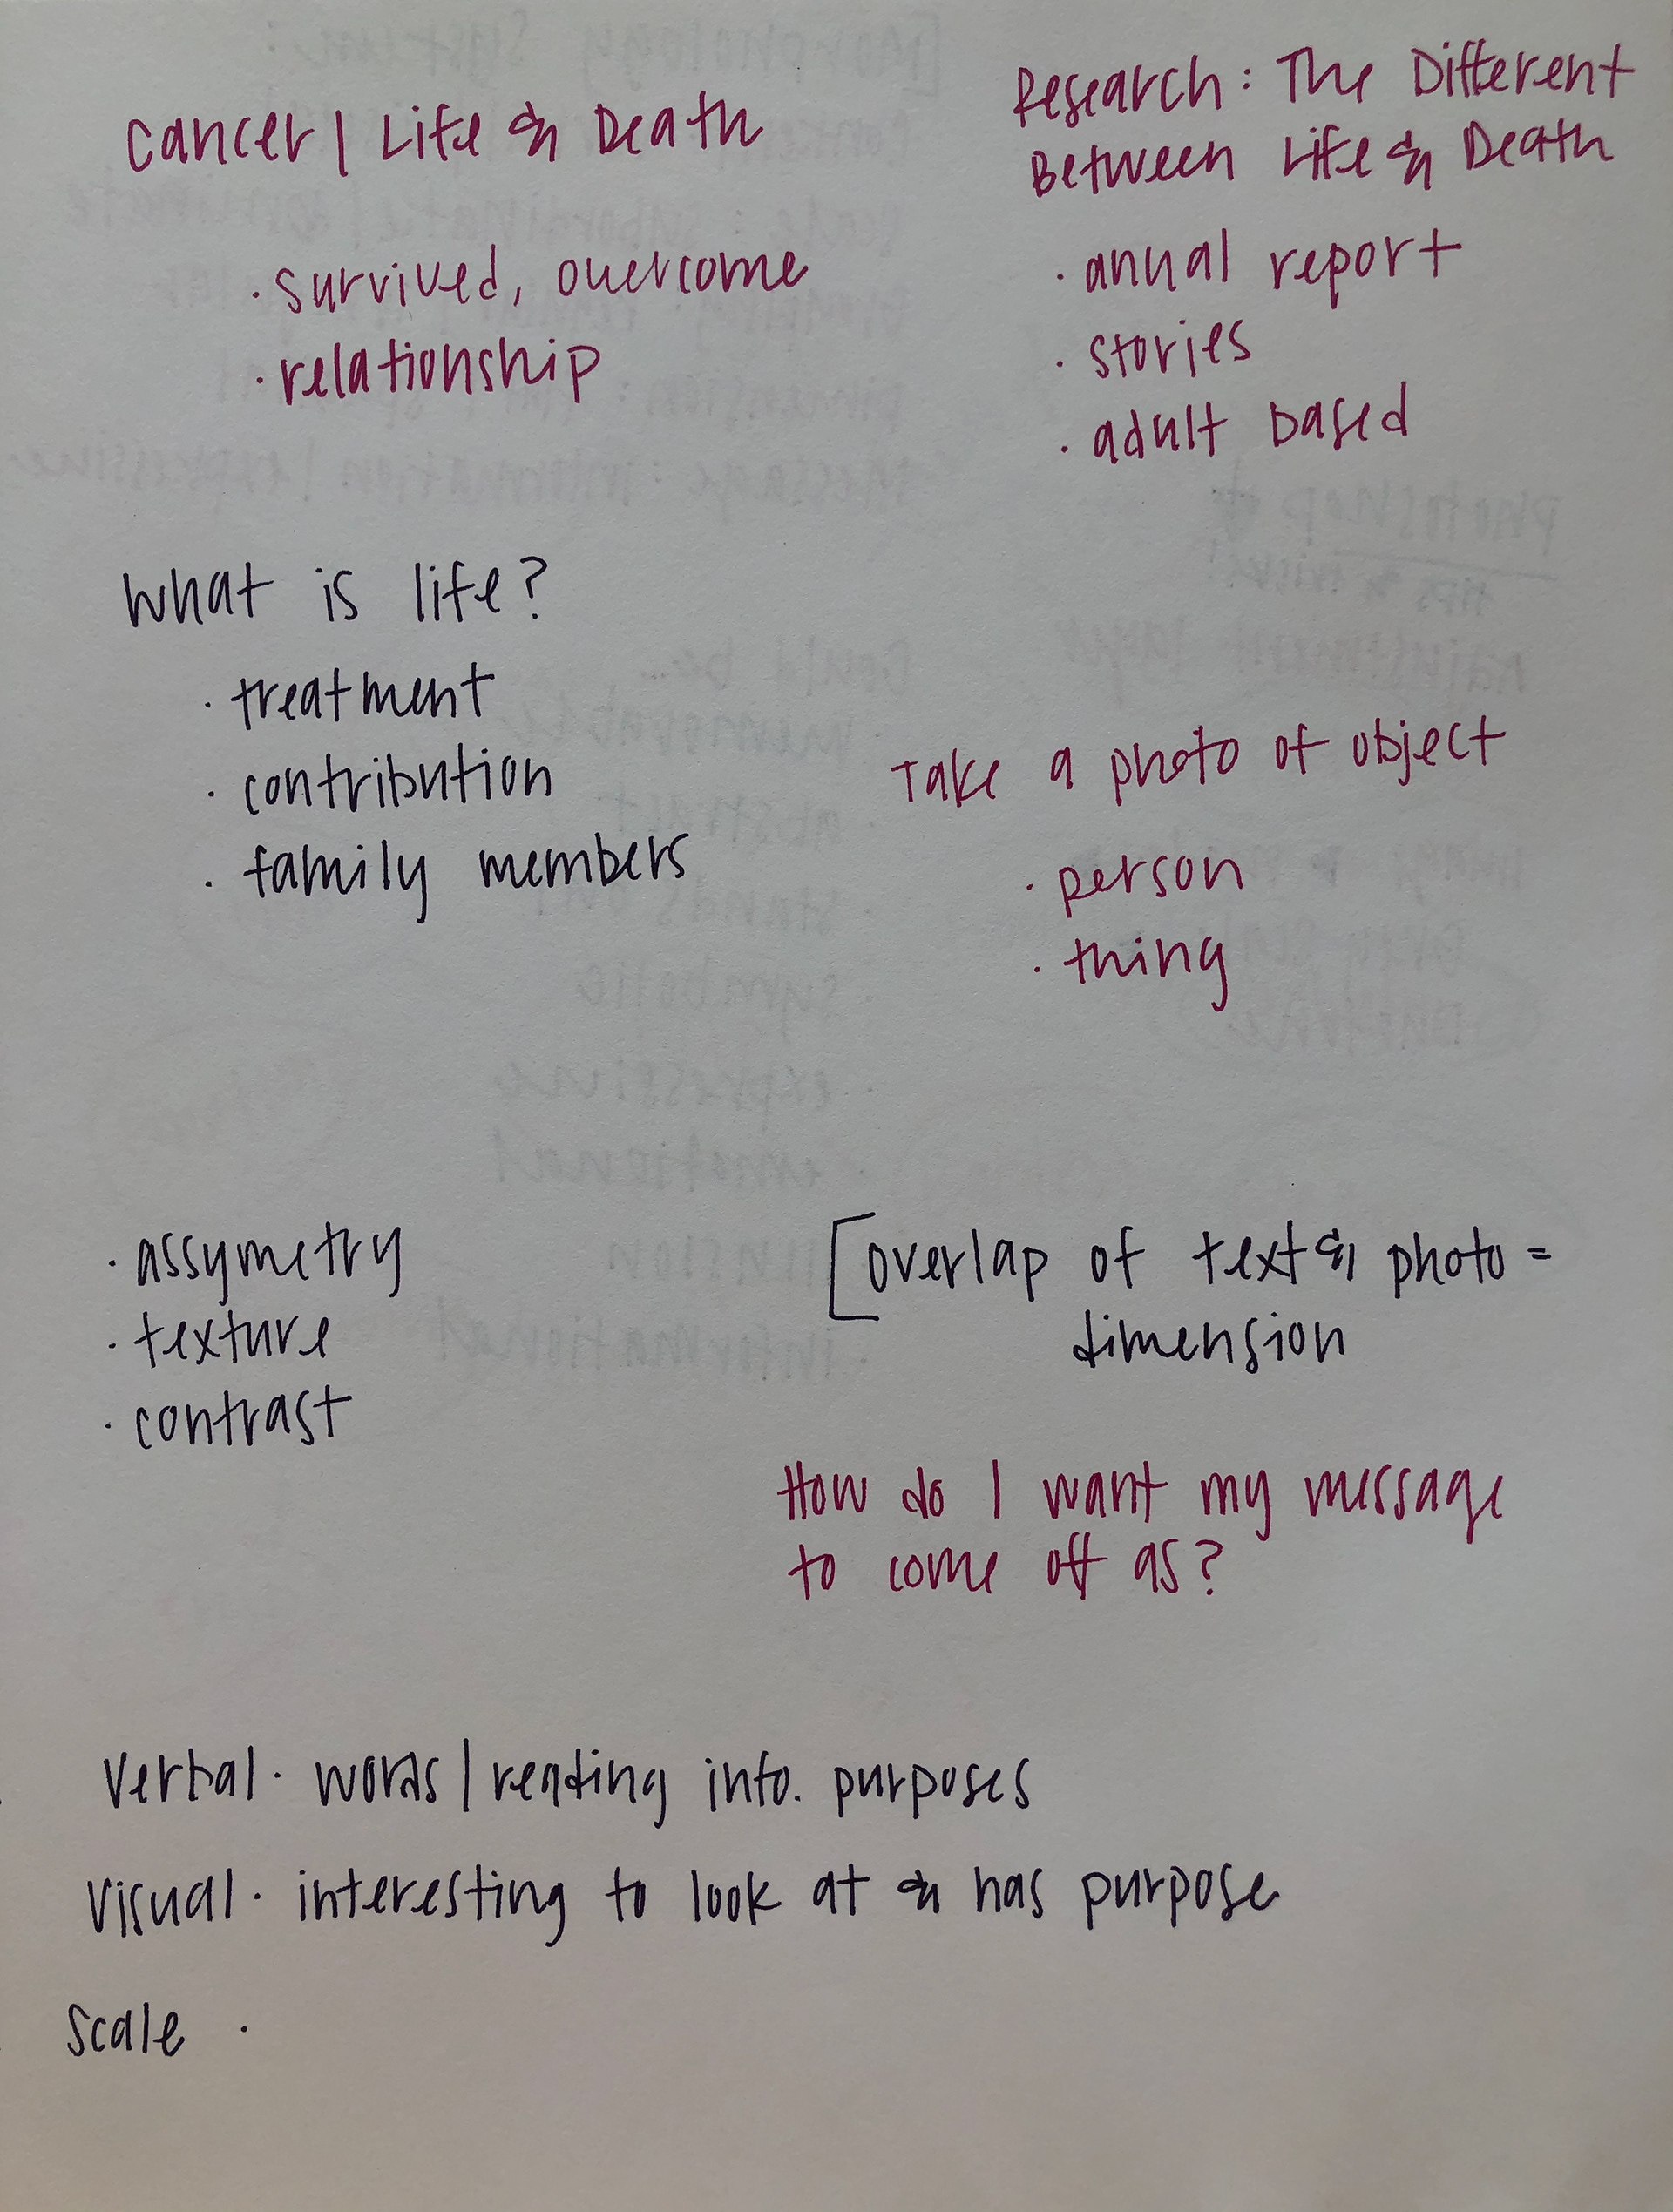 Cancer | Life & Death
· survived, overcome
· relationship
Research: The Different
Between Life & Death
· anual report
· stories
· adult based
What is life?
· treatment
· contribution
· family members
Take a photo of object
· person
· thing
· assymetry
· texture
· contrast
[overlap of text & photo =
dimension
How do I want my message
to come off as?
Verbal · words | reading info. purposes
Visual · interesting to look at & has purpose
Scale ·